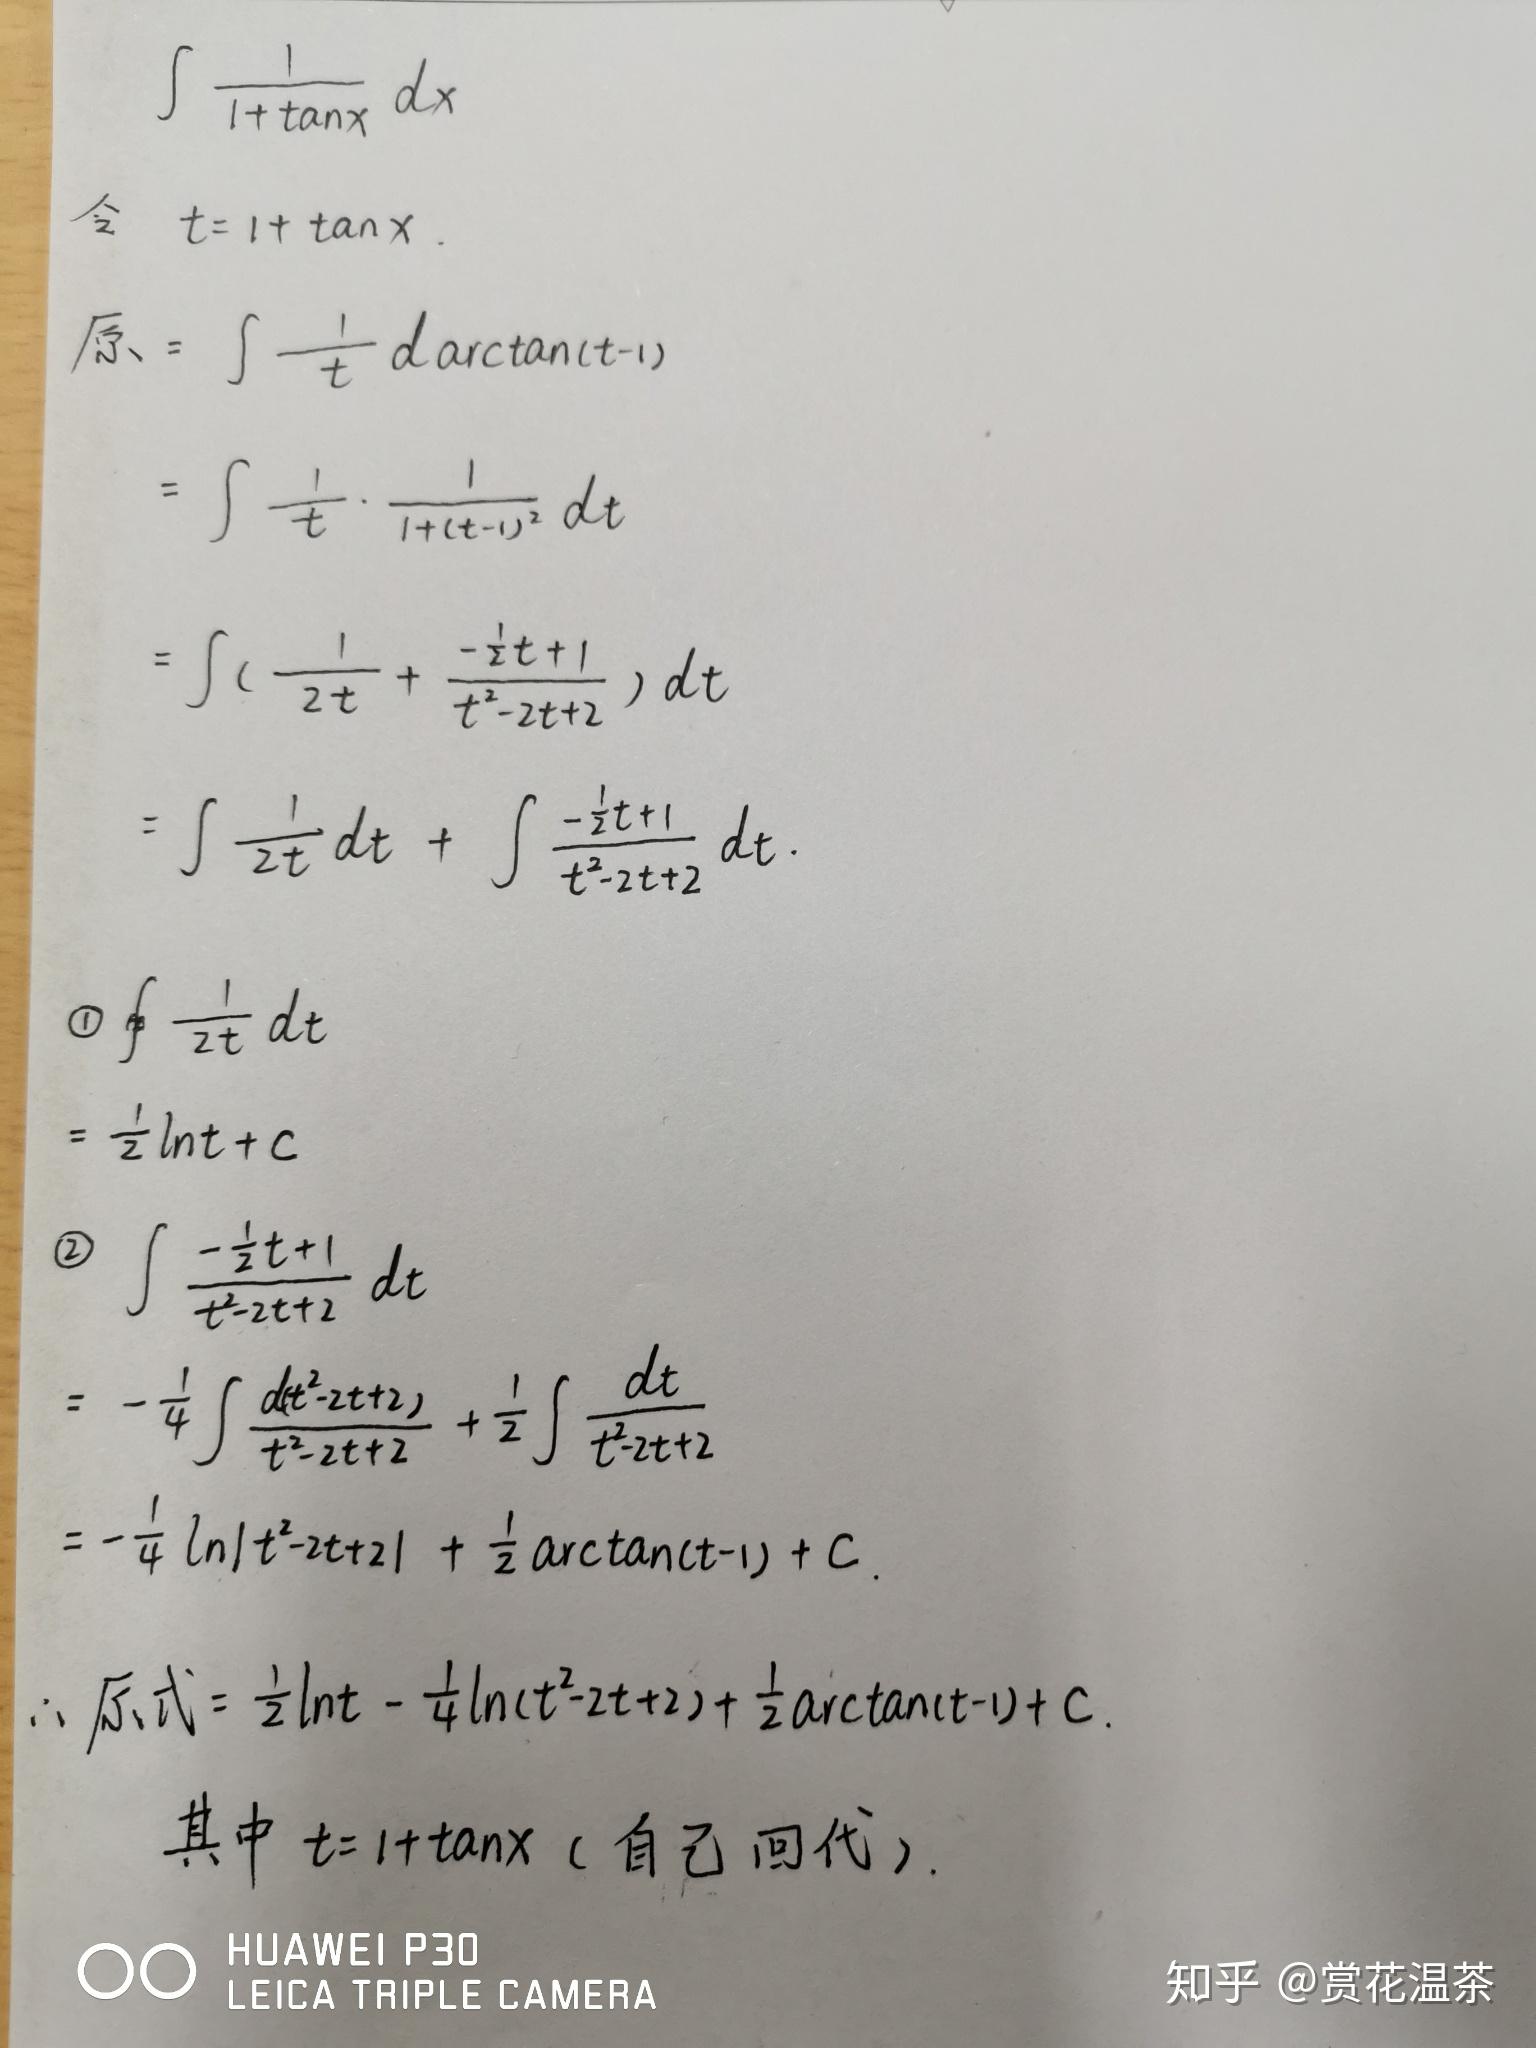 ∫ 1/(1+tanx) dx
令 t=1+tanx.
原 = ∫ 1/t d arctan(t-1)
= ∫ 1/t · 1/(1+(t-1)²) dt
= ∫ ( 1/(2t) + (-½t+1)/(t²-2t+2) ) dt
= ∫ 1/(2t) dt + ∫ (-½t+1)/(t²-2t+2) dt.
① ∮ 1/(2t) dt
= ½ lnt + C
② ∫ (-½t+1)/(t²-2t+2) dt
= -¼ ∫ d(t²-2t+2)/(t²-2t+2) + ½ ∫ dt/(t²-2t+2)
= -¼ ln|t²-2t+2| + ½ arctan(t-1) + C.
∴ 原式 = ½ lnt - ¼ ln(t²-2t+2) + ½ arctan(t-1) + C.
其中 t=1+tanx (自己回代).
HUAWEI P30
LEICA TRIPLE CAMERA
知乎 @赏花温茶